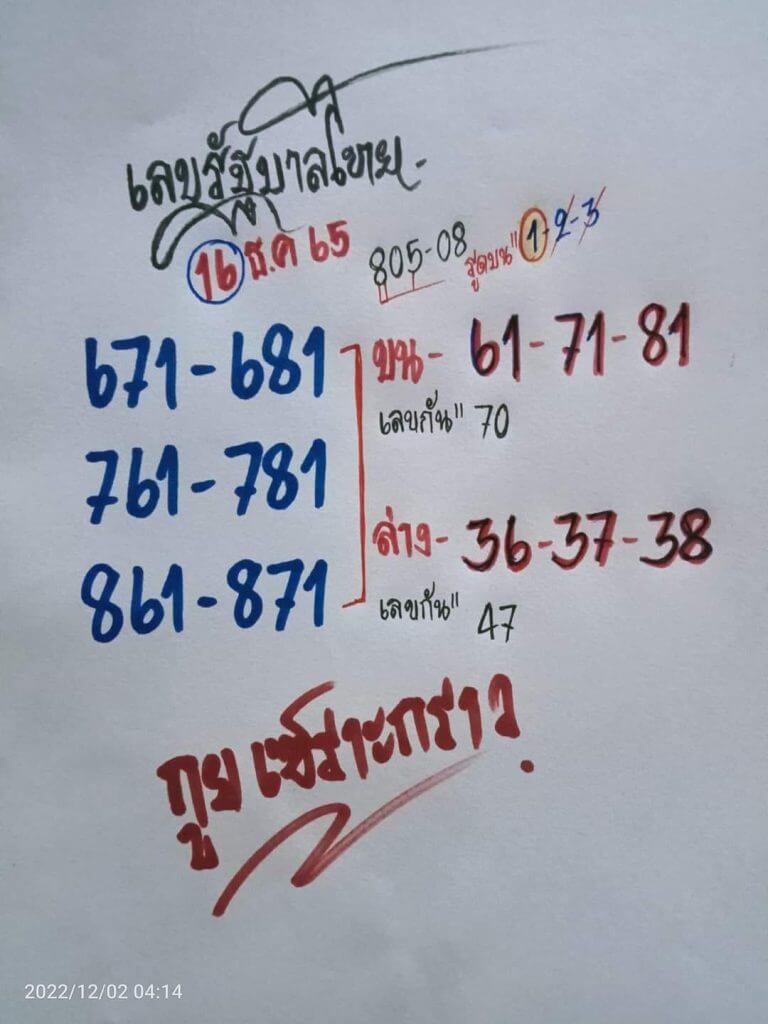 เลขรัฐบาลไทย-
16 ธ.ค 65
805-08 รูดบน" 1-2-3
671-681
บน- 61-71-81
เลขกัน" 70
761-781
ล่าง- 36-37-38
861-871
เลขกัน" 47
กูย
2022/12/02 04:14